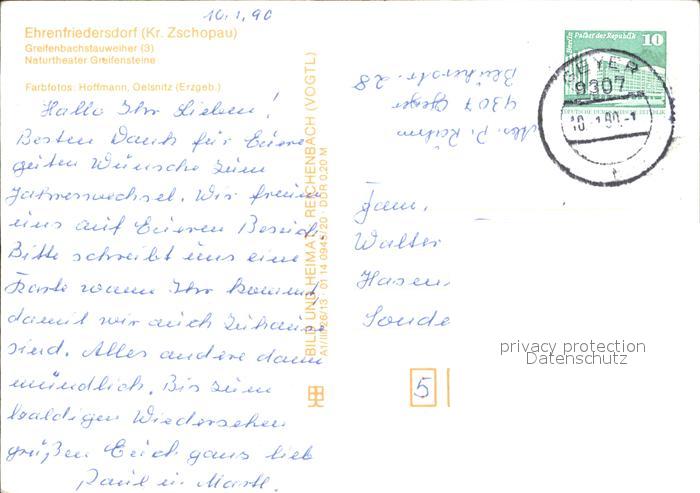 10.1.90
Ehrenfriedersdorf (Kr. Zschopau)
Greifenbachstauweiher (3)
Naturtheater Greifensteine
Farbfotos: Hoffmann, Oelsnitz (Erzgeb.)
Hallo Ihr Lieben!
Besten Dank für Eure
guten Wünsche zum
Jahreswechsel. Wir freuen
uns auf Eueren Besuch.
Bitte schreibt uns eine
Karte wann Ihr kommt,
damit wir auch Zuhause
sind. Alles andere dann
mündlich. Bis zum
baldigen Wiedersehen
grüßen Euch ganz lieb
Paul u. Martl.
BILD UND HEIMAT REICHENBACH (VOGTL)
A1/III/26/13 01 14 0945/20 DDR 0,20 M
9307 Geyer
28
Berlin Palast der Republik
10
DEUTSCHE DEMOKRATISCHE REPUBLIK
GEYER
9307
10.-1.90.-1
Fam.
Walter
Hasen
Sonde
5
privacy protection
Datenschutz